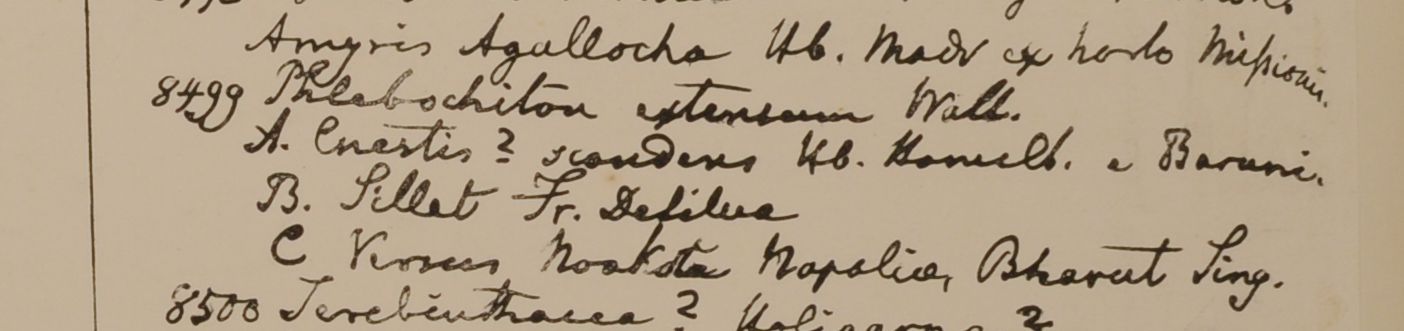 Amyris Agallocha Hb. Madr ex horto Mission.
8499 Phlebochiton extensum Wall.
A. Cnestis? scandens Hb. Hamilt. e Baruni.
B. Sillet Fr. De Silva
C Versus Noakota Napaliæ, Bharut Sing.
8500 Terebinthacea? Holigarna?